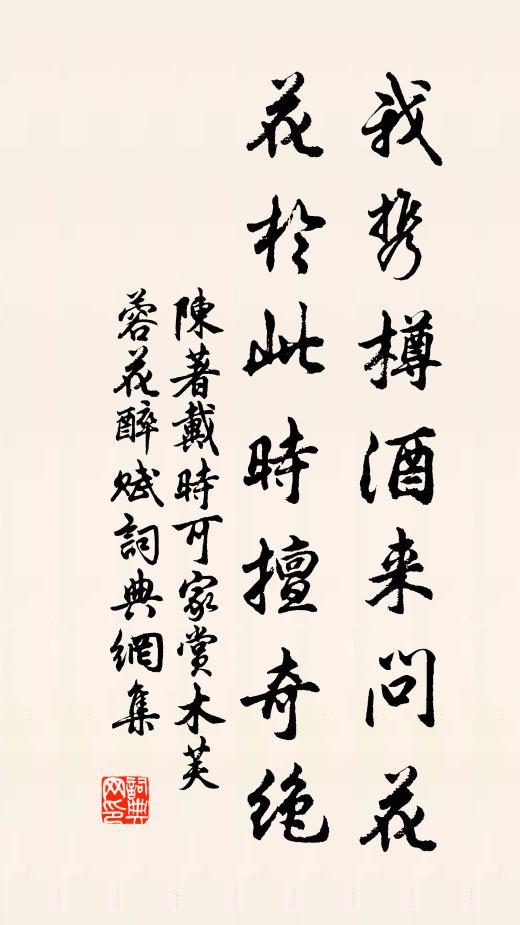 我携樽酒来问花
花於此時擅奇绝
陳著戴時可家賞木芙
蓉花醉赋詞典網集
詞典网印